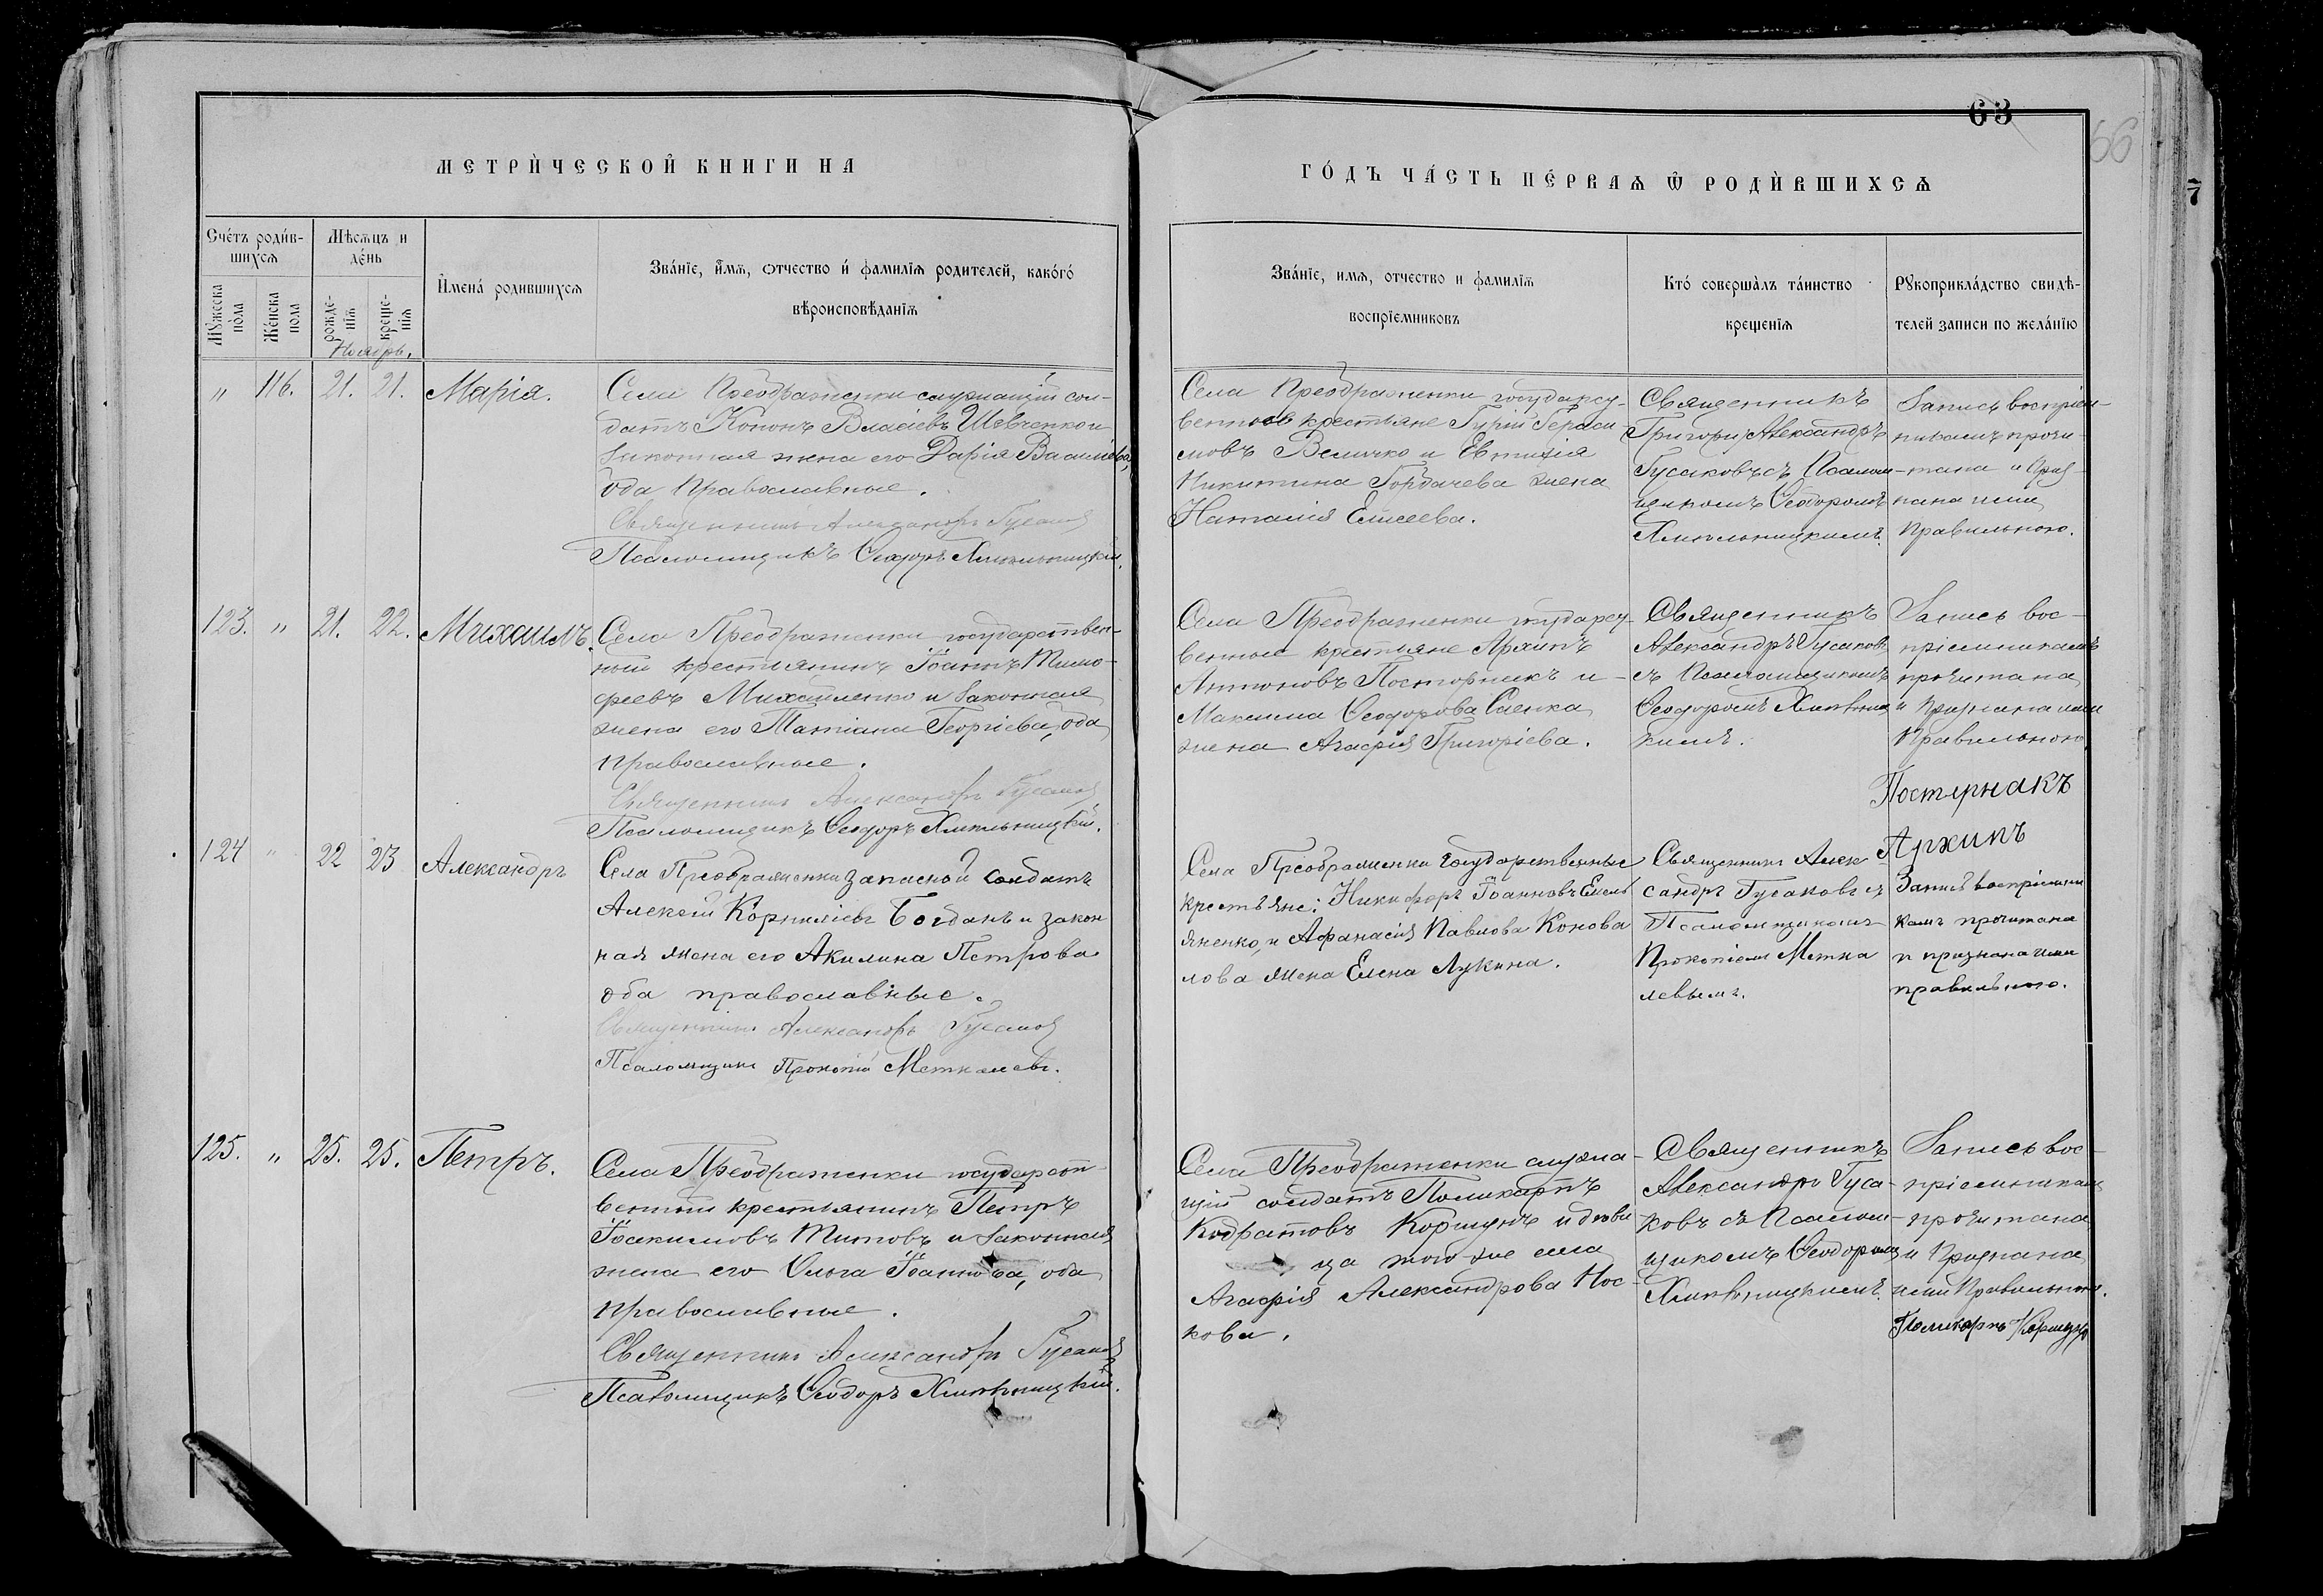 63
66
7
МЕТРИ́ЧЕСКОЙ КНИГИ НА
ГО́ДЪ ЧА́СТЬ ПЕ́РВАѦ Ѡ҆ РОДИ́ВШИХСѦ
Сче́тъ роди́в-
шихсѧ
Мꙋжеска по́ла
Же́нска пола
Мѣсѧцъ и де́нь
рожде-
нїѧ
креще-
нїѧ
Ноябрь.
И҆мена́ родившихсѧ
Зва́нїе, и҆́мѧ, ѻтчество и҆ фамилїѧ родителей, како́гѡ
вѣроисповѣ́данїѧ
Зва́нїе, имѧ, отчество и фамилїѧ
воспрїемниковъ
Кто́ соверша́лъ та́инство
крещенїѧ
Рꙋкоприкла́дство свидѣ-
телей записи по жела́нїю
„ 116. 21. 21. Марія.
Села Преображенки служащій сол-
датъ Кононъ Власіевъ Шевченко и
законная жена его Дарія Василіева,
оба православные.
Священникъ Александръ Гусаковъ
Псаломщикъ Ѳеодоръ Хмельницкій.
Села Преображенки государст-
венные крестьяне Гурій Гераси-
мовъ Величко и
Никитина Горбачева жена
Наталія Елисеева.
Священникъ
Григорій Александръ
Гусаковъ съ Псалом-
щикомъ Ѳеодоромъ
Хмельницкимъ.
Запись воспріем-
никамъ прочи-
тана и приз-
нана ими
правильною.
123. „ 21. 22. Михаилъ.
Села Преображенки государствен-
ный крестьянинъ Іоаннъ Тимо-
феевъ Михайленко и законная
жена его Татіана Георгіева, оба
православные.
Священникъ Александръ Гусаковъ
Псаломщикъ Ѳеодоръ Хмельницкій.
Села Преображенки государст-
венные крестьяне Архипъ
Антоновъ Постернакъ и
Максима Ѳеодорова Саенка
жена Агафія Григоріева.
Священникъ
Александръ Гусаковъ
съ Псаломщикомъ
Ѳеодоромъ Хмельниц-
кимъ.
Запись вос-
пріемникамъ
прочитана
и признана ими
правильною.
Постернакъ
Архипъ
124 „ 22 23 Александръ
Села Преображенки запасной солдатъ
Алексѣй Корниліевъ Богданъ и закон
ная жена его Акилина Петрова
оба православные.
Священникъ Александръ Гусаковъ
Псаломщикъ Прокопій Меткалевъ.
Села Преображенки государственные
крестьяне: Никифоръ Іоанновъ Емель
яненко, и Афанасія Павлова Конова
лова жена Елена Лукина.
Священникъ Алек
сандръ Гусаковъ съ
Псаломщикомъ
Прокопіемъ Метка
левымъ.
Запись воспріемни
камъ прочитана
и признана ими
правильною.
125. „ 25. 25. Петръ.
Села Преображенки государст-
венный крестьянинъ Петръ
Іоакимовъ Титовъ и законная
жена его Ольга Іоаннова, оба
православные.
Священникъ Александръ Гусаковъ
Псаломщикъ Ѳеодоръ Хмельницкій.
Села Преображенки служа-
щій солдатъ Поликарпъ
Кодратовъ Коршунъ и дѣви
ца того же села
Агафія Александрова Нос-
кова.
Священникъ
Александръ Гуса-
ковъ съ Псалом-
щикомъ Ѳеодоромъ
Хмельницкимъ.
Запись вос-
пріемникамъ
прочитана
и признана
ими правильною.
Поликарпъ Коршунъ